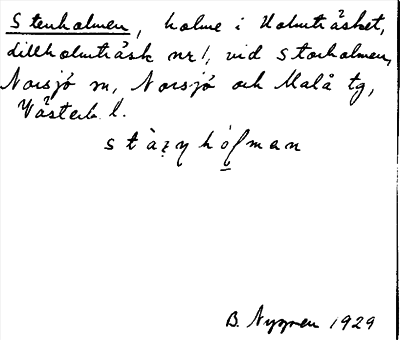 Stenholmen, holme i Holmträsket,
till Holmträsk nr 1, vid Storholmen,
Norsjö sn, Norsjö och Malå tg,
Västerb. l.
B. Nygren 1929